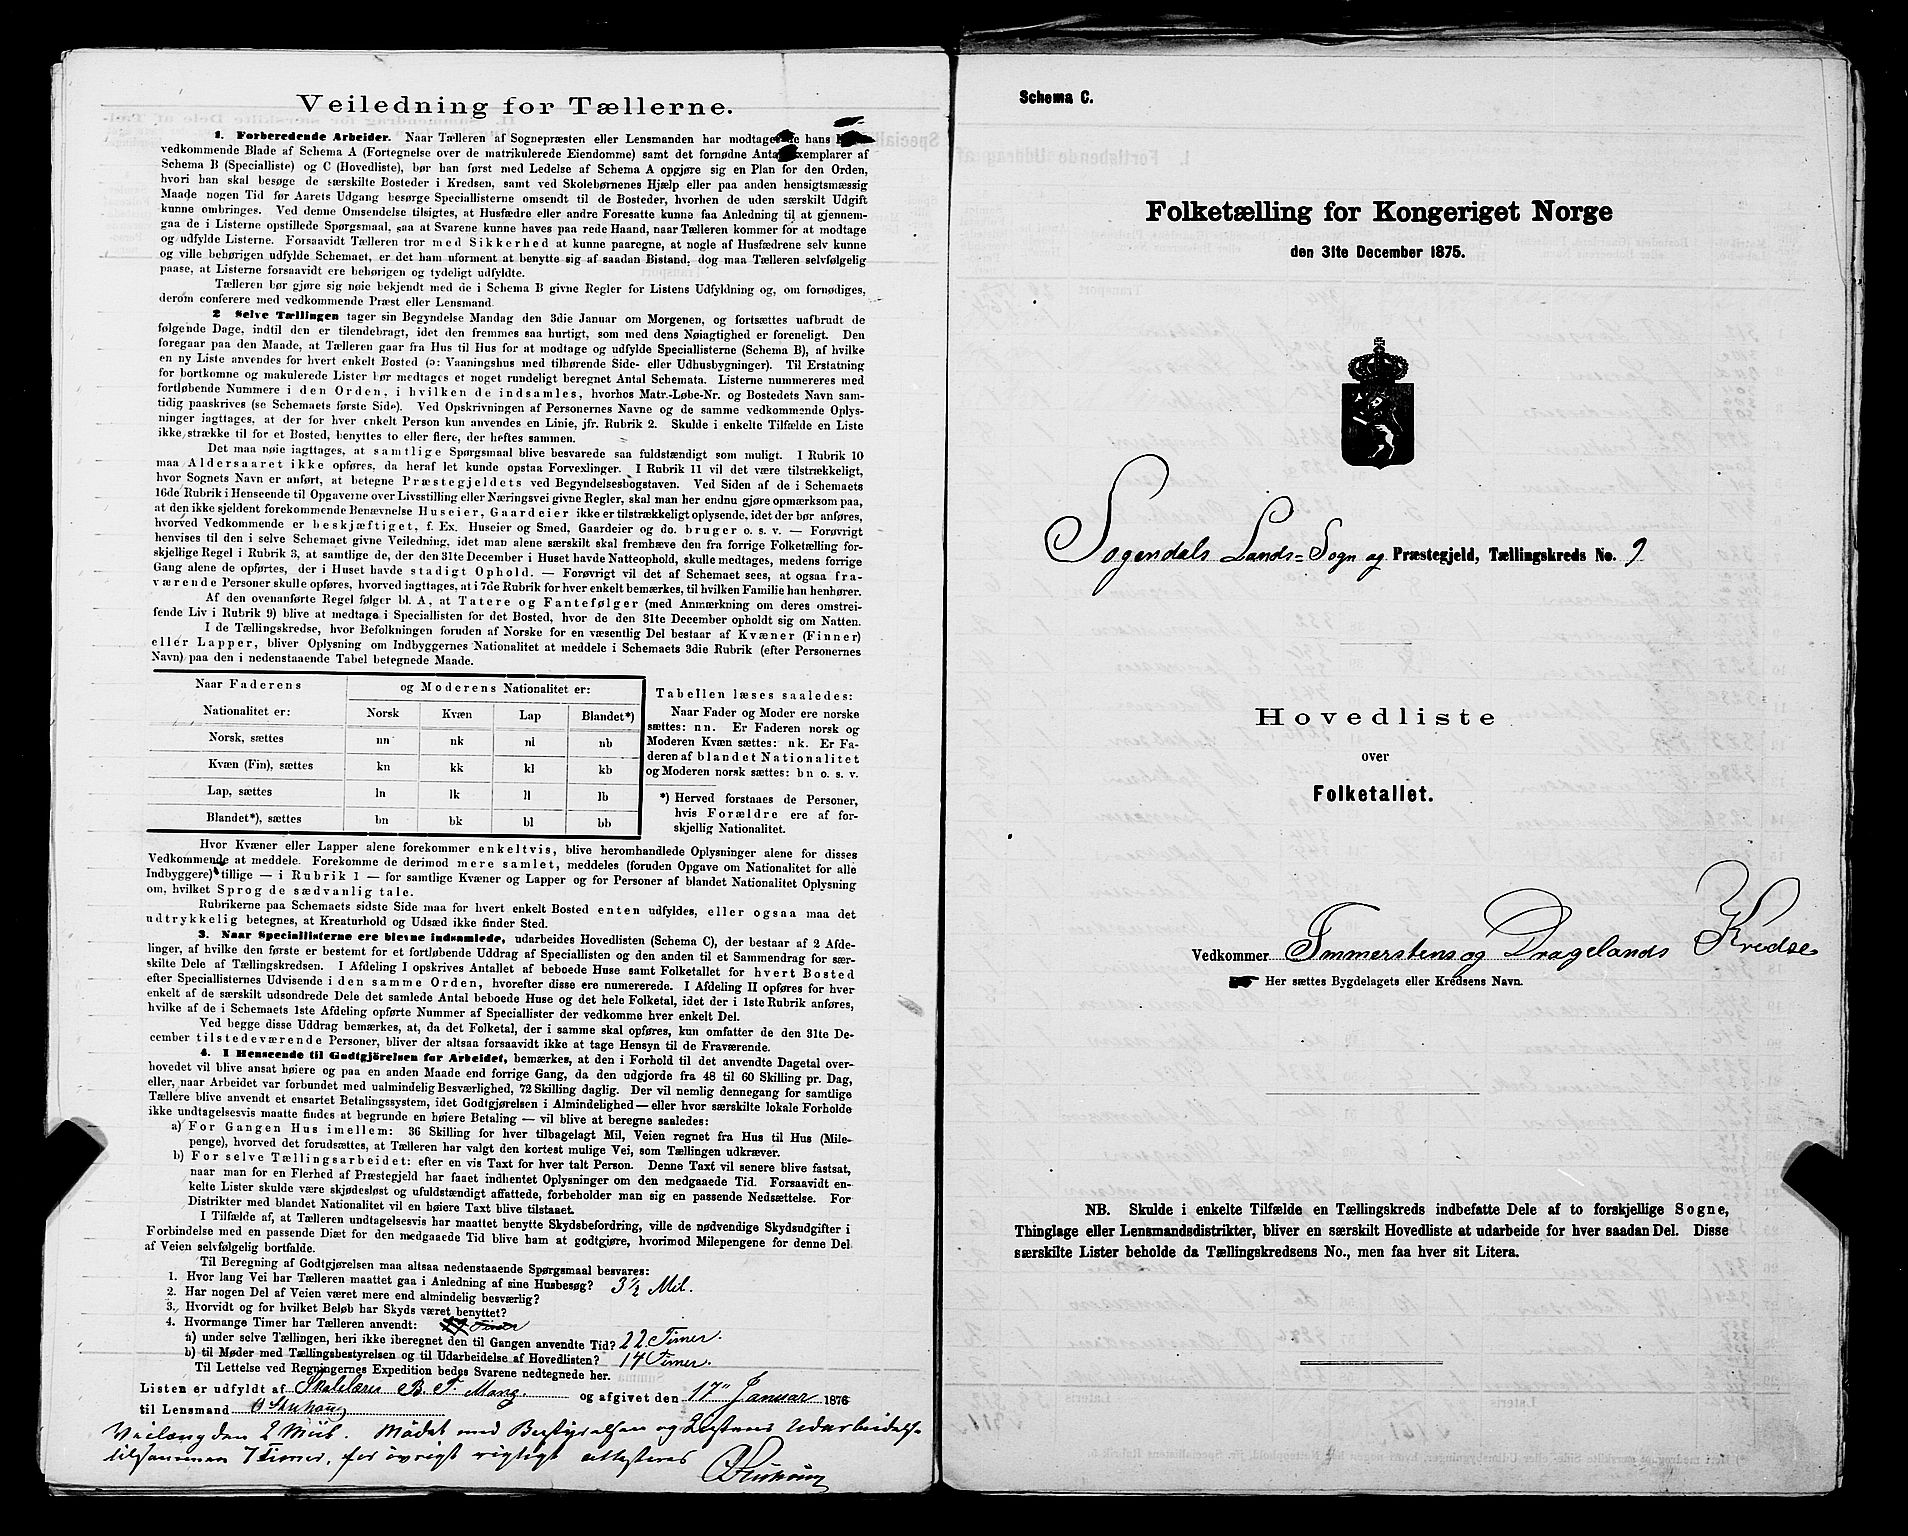 Veiledning for Tællerne.
1. Forberedende Arbeider. Naar Tælleren af Sognepræsten eller Lensmanden har modtaget de hans
vedkommende Blade af Schema A (Fortegnelse over de matrikulerede Eiendomme) samt det fornødne Antal Exemplarer af
Schema B (Specialliste) og C (Hovedliste), bør han først med Ledelse af Schema A opgjøre sig en Plan for den Orden,
hvori han skal besøge de særskilte Bosteder i Kredsen, samt ved Skolebørnenes Hjælp eller paa anden hensigtsmæssig
Maade nogen Tid før Aarets Udgang besørge Speciallisterne omsendt til de Bosteder, hvorhen de uden særskilt Udgift
kunne ombringes. Ved denne Omsendelse tilsigtes, at Husfædre eller andre Foresatte kunne faa Anledning til at gjennem-
gaa de i Listerne opstillede Spørgsmaal, saa at Svarene kunne haves paa rede Haand, naar Tælleren kommer for at modtage
og udfylde Listerne. Forsaavidt Tælleren tror med Sikkerhed at kunne paaregne, at nogle af Husfædrene selv kunne
og ville behørigen udfylde Schemaet, er det ham uforment at benytte sig af saadan Bistand, dog maa Tælleren selvfølgelig
paase, at Listerne forsaavidt ere behørigen og tydeligt udfyldte.
Tælleren bør gjøre sig nøie bekjendt med de i Schema B givne Regler for Listens Udfyldning og, om fornødiges,
derom conferere med vedkommende Præst eller Lensmand.
2 Selve Tællingen tager sin Begyndelse Mandag den 3die Januar om Morgenen, og fortsættes uafbrudt de
følgende Dage, indtil den er tilendebragt, idet den fremmes saa hurtigt, som med dens Nøiagtighed er foreneligt. Den
foregaar paa den Maade, at Tælleren gaar fra Hus til Hus for at modtage og udfylde Speciallisterne (Schema B), af hvilke
en ny Liste anvendes for hvert enkelt Bosted (ɔ: Vaaningshus med tilhørende Side- eller Udhusbygninger). Til Erstatning
for bortkomne og makulerede Lister bør medtages et noget rundeligt beregnet Antal Schemata. Listerne nummereres med
fortløbende Nummere i den Orden, i hvilken de indsamles, hvorhos Matr.-Løbe-Nr. og Bostedets Navn sam-
tidig paaskrives (se Schemaets første Side). Ved Opskrivningen af Personernes Navne og de samme vedkommende Oplys-
ninger iagttages, at der for hver enkelt Person kun anvendes en Linie, jfr. Rubrik 2. Skulde i enkelte Tilfælde en Liste
ikke strække til for et Bosted, benyttes to eller flere, der heftes sammen.
Det maa nøie iagttages, at samtlige Spørgsmaal blive besvarede saa fuldstændigt som muligt. I Rubrik 10
maa Aldersaaret ikke opføres, da heraf let kunde opstaa Forvexlinger. I Rubrik 11 vil det være tilstrækkeligt,
hvor Sognets Navn er anført, at betegne Præstegjeldets ved Begyndelsesbogstaven. Ved Siden af de i Schemaets
16de Rubrik i Henseende til Opgaverne over Livsstilling eller Næringsvei givne Regler, skal man her endnu gjøre opmærksom paa,
at den ikke sjeldent forekommende Benævnelse Huseier, Gaardeier ikke er tilstrækkeligt oplysende, idet der bør anføres,
hvorved Vedkommende er beskjæftiget, f. Ex. Huseier og Smed, Gaardeier og do. bruger o. s. v. — Forøvrigt
henvises til den i selve Schemaet givne Veiledning, idet man alene særskilt skal fremhæve den fra forrige Folketælling for-
skjellige Regel i Rubrik 3, at samtlige de, der den 31te December i Huset havde Natteophold, skulle medtages, medens forrige
Gang alene de opførtes, der i Huset havde stadigt Ophold. — Forøvrigt vil det af Schemaet sees, at ogsaa fra-
værende Personer skulle opføres, hvorved iagttages, at i 7de Rubrik for hver enkelt bemærkes, til hvilken Familie han henhører.
Af den ovenanførte Regel følger bl. A, at Tatere og Fantefølger (med Anmærkning om deres omstrei-
fende Liv i Rubrik 9) blive at medtage i Speciallisten for det Bosted, hvor de den 31te December opholdt sig om Natten.
I de Tællingskredse, hvor Befolkningen foruden af Norske for en væsentlig Del bestaar af Kvæner (Finner)
eller Lapper, bliver Oplysning om Indbyggernes Nationalitet at meddele i Schemaets 3die Rubrik (efter Personernes
Navn) paa den i nedenstaaende Tabel betegnede Maade.
Naar Faderens og Moderens Nationalitet er:
Nationalitet er: Norsk Kvæn Lap Blandet*)
Norsk, sættes nn nk nl nb
Kvæn (Fin), sættes kn kk kl kb
Lap, sættes ln lk ll lb
Blandet*), sættes bn bk bl bb
Tabellen læses saaledes:
Naar Fader og Moder ere norske
sættes: nn. Er Faderen norsk og
Moderen Kvæn sættes: nk. Er Fa-
deren af blandet Nationalitet
og Moderen norsk sættes: bn o. s. v.
*) Herved forstaaes de Personer,
hvis Forældre ere af for-
skjellig Nationalitet.
Hvor Kvæner eller Lapper alene forekommer enkeltvis, blive heromhandlede Oplysninger alene for disses
Vedkommende at meddele. Forekomme de derimod mere samlet, meddeles (foruden Opgave om Nationalitet for alle
Indbyggere) tillige — i Rubrik 1 — for samtlige Kvæner og Lapper og for Personer af blandet Nationalitet Oplysning
om, hvilket Sprog de sædvanlig tale.
Rubrikerne paa Schemaets sidste Side maa for hvert enkelt Bosted enten udfyldes, eller ogsaa maa det
udtrykkelig betegnes, at Kreaturhold og Udsæd ikke finder Sted.
3. Naar Speciallisterne ere blevne indsamlede, udarbeides Hovedlisten (Schema C), der bestaar af 2 Afde-
linger, af hvilke den første er bestemt for et fortløbende Uddrag af Specialisten og den anden til et Sammendrag for sær-
skilte Dele af Tællingskredsen. I Afdeling I opskrives Antallet af beboede Huse samt Folketallet for hvert Bosted
efter Speciallisternes Udvisende i den samme Orden, hvorefter disse ere numererede. I Afdeling II opføres for hver
enkelt af de særskilt udsondrede Dele det samlede Antal beboede Huse og det hele Folketal, idet der i 1ste Rubrik anføres,
hvilke af de i Schemaets 1ste Afdeling opførte Nummer af Speciallister der vedkomme hver enkelt Del.
Ved begge disse Uddrag bemærkes, at, da det Folketal, der i samme skal opføres, kun omfatter de den 31te De-
cember tilstedeværende Personer, bliver der altsaa forsaavidt ikke at tage Hensyn til de Fraværende.
4. I Henseende til Godtgjörelsen for Arbeidet, bemærkes, at den i Forhold til det anvendte Dagetal over-
hovedet vil blive ansat høiere og paa en anden Maade end forrige Gang, da den udgjorde fra 48 til 60 Skilling pr. Dag,
eller, naar Arbeidet var forbundet med ualmindelig Besværlighed, 72 Skilling daglig. Der vil nemlig dennegang for samtlige
Tællere blive anvendt et ensartet Betalingssystem, idet Godtgjørelsen i Almindelighed — eller hvor særskilte lokale Forholde
ikke undtagelsesvis maatte findes at begrunde en høiere Betaling — vil blive at beregne saaledes:
a) For Gangen Hus imellem: 36 Skilling for hver tilbagelagt Mil, Veien regnet fra Hus til Hus (Mile-
penge), hvorved det forudsættes, at Tælleren har valgt den kortest mulige Vei, som Tællingen udkræver.
b) For selve Tællingsarbeidet: efter en vis Taxt for hver talt Person. Denne Taxt vil senere blive fastsat,
naar man for en Flerhed af Præstegjeld har faaet indhentet Oplysninger om den medgaaede Tid. Forsaavidt en-
kelte Lister skulde være skjødesløst og ufuldstændigt affattede, forbeholder man sig en passende Nedsættelse. For
Distrikter med blandet Nationalitet vil en høiere Taxt blive tilstaaet.
I Tilfælde af, at Tælleren undtagelsesvis har maattet benytte Skydsbefordring, ville de nødvendige Skydsudgifter i
Forbindelse med en passende Diæt for den medgaaede Tid blive ham at godtgjøre, hvorimod Milepengene for denne Del
af Veien selvfølgelig bortfalde.
Til Beregning af Godtgjørelsen maa altsaa nedenstaaende Spørgsmaal besvares:
1. Hvor lang Vei har Tælleren maattet gaa i Anledning af sine Husbesøg? 3½ Mil.
2. Har nogen Del af Veien været mere end almindelig besværlig?
3. Hvorvidt og for hvilket Beløb har Skyds været benyttet?
4. Hvormange Timer har Tælleren anvendt:
a) under selve Tællingen, heri ikke iberegnet den til Gangen anvendte Tid? 22 Timer.
b) til Møder med Tællingsbestyrelsen og til Udarbeidelse af Hovedlisten? 14 Timer.
Til Lettelse ved Regningernes Expedition bedes Svarene nedtegnede her.
Listen er udfyldt af Skolelærer B. T. Mong. og afgivet den 17" Januar 1876
til Lensmand
Veilængden 2 Miil. Mødet med Bestyrelsen og Listens Udarbeidelse
tilsammen 7 Timer, for övrigt rigtigt attesteres
Schema C.
Folketælling for Kongeriget Norge
den 31te December 1875.
Sogendals Lands- Sogn og Præstegjeld, Tællingskreds No. 9
Hovedliste
over
Folketallet.
Vedkommer Immerstens og Dragelands Kredse
Her sættes Bygdelagets eller Kredsens Navn.
NB. Skulde i enkelte Tilfælde en Tællingskreds indbefatte Dele af to forskjellige Sogne,
Thinglage eller Lensmandsdistrikter, bliver en særskilt Hovedliste at udarbeide for hver saadan Del. Disse
særskilte Lister beholde da Tællingskredsens No., men faa hver sit Litera.